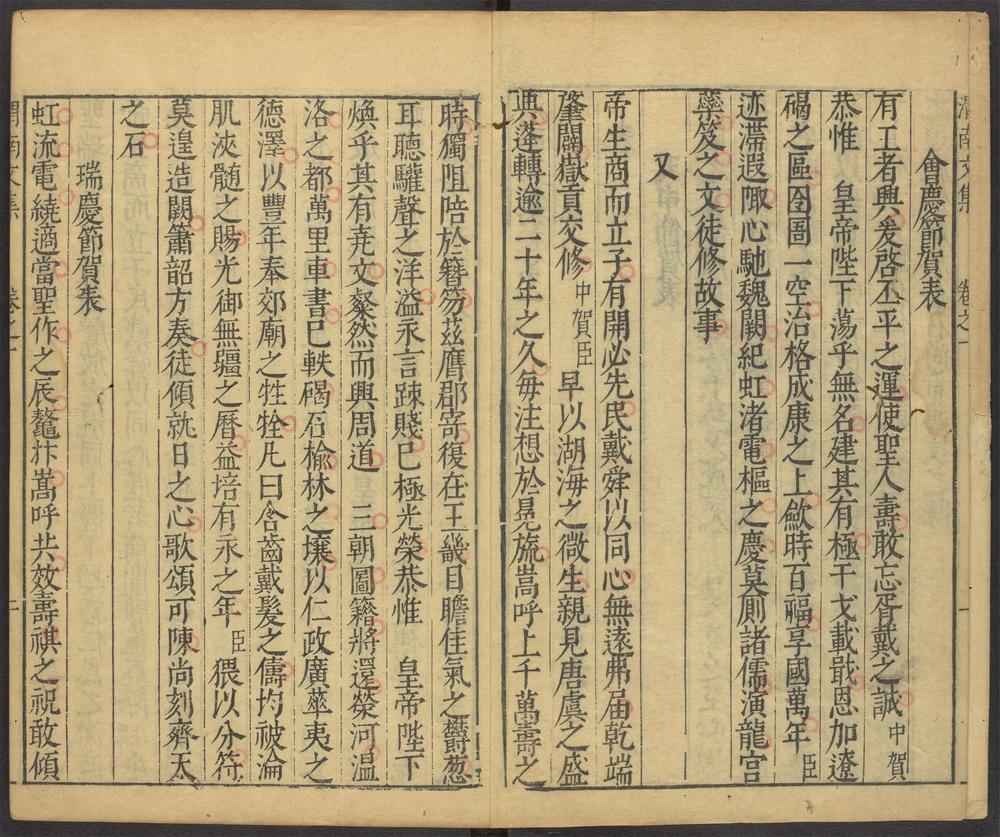 渭南文集 卷之一
會慶節賀表
有工者興爰啓丕平之運使聖人壽敢忘胥戴之誠中賀
恭惟 皇帝陛下蕩乎無名建其有極干戈載戢恩加遼
碣之區囹圄一空治格成康之上斂時百福享國萬年臣
迹滯遐陬心馳魏闕紀虹渚電樞之慶莫厠諸儒演龍宮
蘂笈之文徒修故事
又
帝生商而立子有開必先民戴舜以同心無遠弗届乾端
肇闢嶽貢交修中賀臣早以湖海之微生親見唐虞之盛
典蓬轉逾二十年之久每注想於晃旒嵩呼上千萬壽之
時獨阻陪於簪笏茲膺郡寄復在王畿目瞻佳氣之欝葱
耳聽驩聲之洋溢永言踈賤已極光榮恭惟 皇帝陛下
煥乎其有堯文粲然而興周道 三朝圖籍將還榮河温
洛之都萬里車書已軼碣石榆林之壤以仁政廣華夷之
德澤以豐年奉郊廟之牲牷凡曰含齒戴髮之儔均被淪
肌浹髓之賜光御無疆之曆益培有永之年臣猥以分符
莫遑造闕簫韶方奏徒傾就日之心歌頌可陳尚刻齊天
之石
瑞慶節賀表
虹流電繞適當聖作之辰鼇抃嵩呼共效壽祺之祝敢傾
渭南文集 卷之一